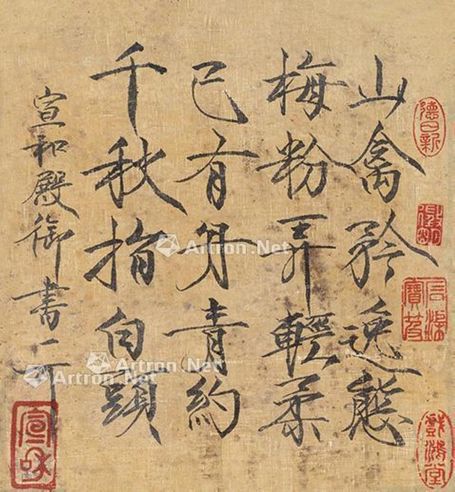 山禽矜逸態
梅粉弄輕柔
已有丹青約
千秋指白頭
宣和殿御書
德日新
戲鴻堂
宣和
Artron.Net
Artron.Net
Artron.Net